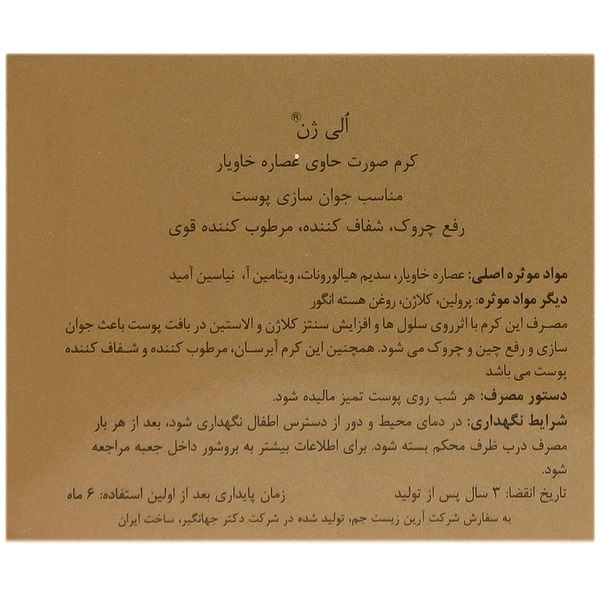 اُلی ژن®
کرم صورت حاوی عصاره خاویار
مناسب جوان سازی پوست
رفع چروک، شفاف کننده، مرطوب کننده قوی
مواد موثره اصلی: عصاره خاویار، سدیم هیالورونات، ویتامین آ، نیاسین آمید
دیگر مواد موثره: پرولین، کلاژن، روغن هسته انگور
مصرف این کرم با اثرروی سلول ها و افزایش سنتز کلاژن و الاستین در بافت پوست باعث جوان
سازی و رفع چین و چروک می شود. همچنین این کرم آبرسان، مرطوب کننده و شفاف کننده
پوست می باشد
دستور مصرف: هر شب روی پوست تمیز مالیده شود.
شرایط نگهداری: در دمای محیط و دور از دسترس اطفال نگهداری شود، بعد از هر بار
مصرف درب ظرف محکم بسته شود. برای اطلاعات بیشتر به بروشور داخل جعبه مراجعه
شود.
تاریخ انقضا: ۳ سال پس از تولید زمان پایداری بعد از اولین استفاده: ۶ ماه
به سفارش شرکت آرین زیست جم، تولید شده در شرکت دکتر جهانگیر، ساخت ایران